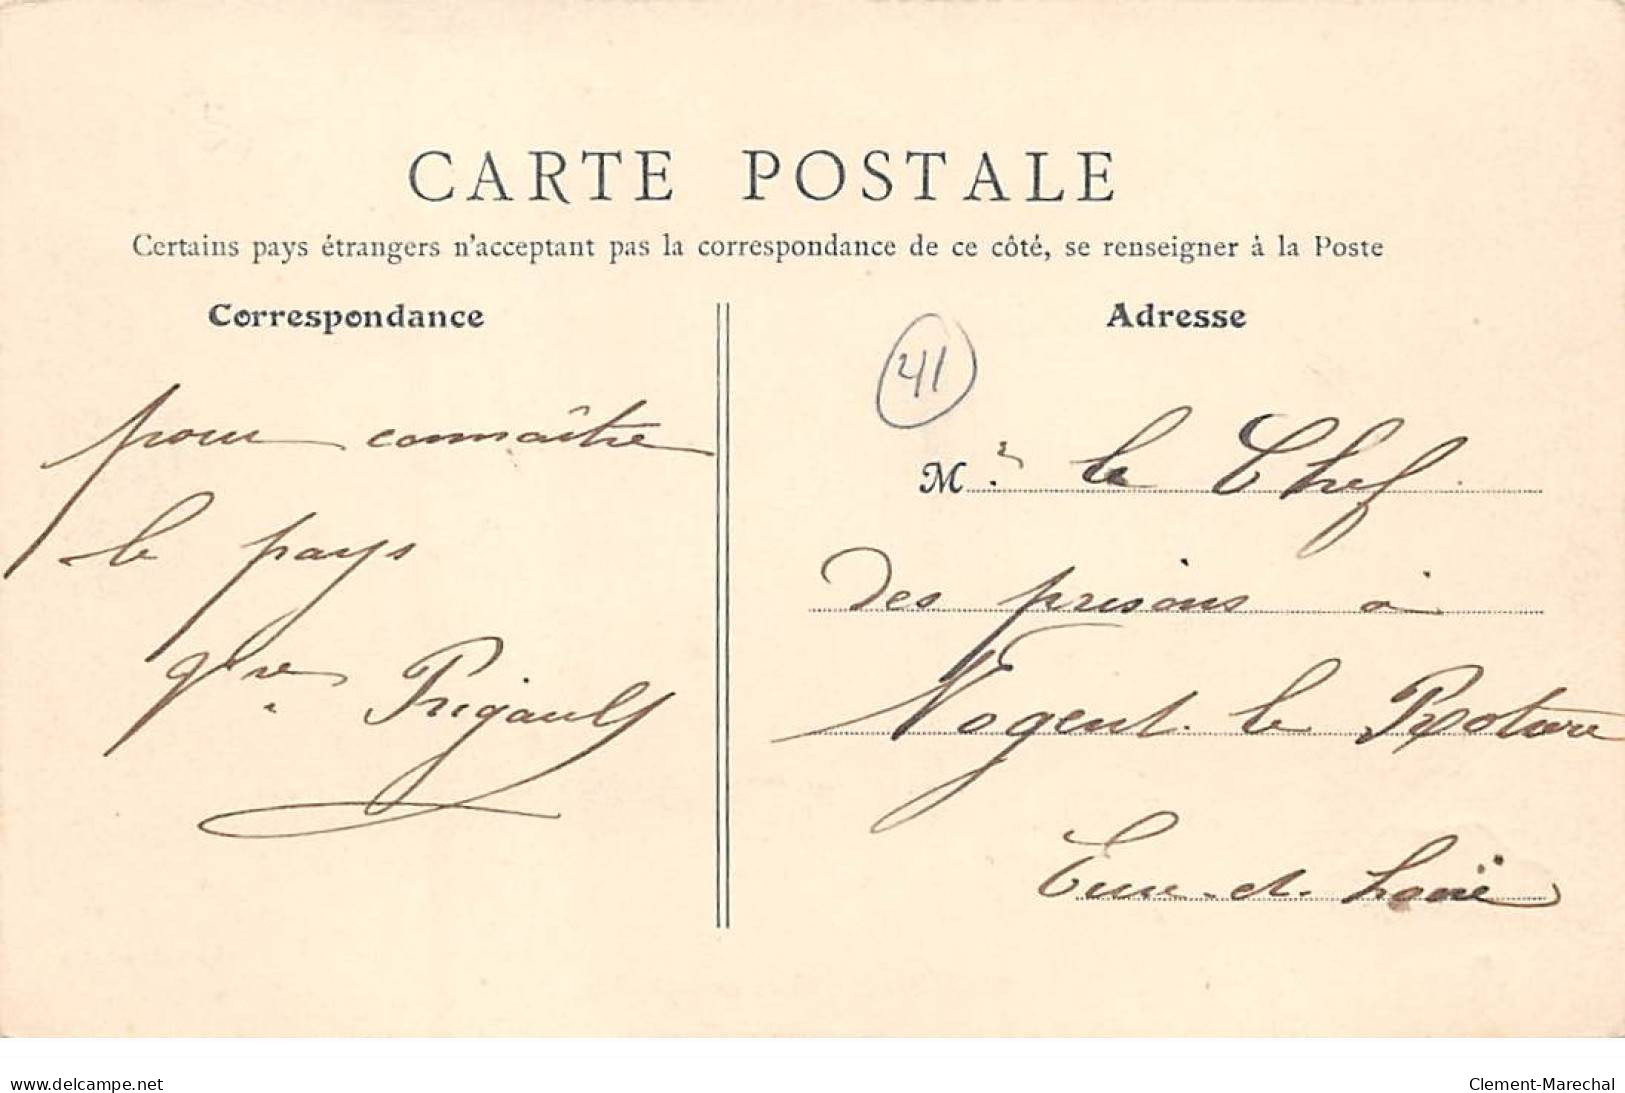 CARTE POSTALE
Certains pays étrangers n'acceptant pas la correspondance de ce côté, se renseigner à la Poste
Correspondance
pour connaître
le pays
Prigault
Adresse
41
Mr. le Chef
des prisons à
Nogent le Rotrou
Eure-et-Loire
www.delcampe.net
Clement-Marechal